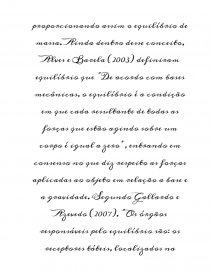 proporcionando assim o equilíbrio de
massa. Ainda dentro desse conceito,
Alves e Barela (2003) definiram
equilíbrio que "De acordo com bases
mecânicas, o equilíbrio é a condição
em que cada resultante de todas as
forças que estão agindo sobre um
corpo é igual a zero", entrando em
consenso no que diz respeito as forças
aplicadas ao objeto em relação a base e
a gravidade. Segundo Gallardo e
Azevedo (2007), "Os órgãos
responsáveis pelo equilíbrio são: os
receptores táteis, localizados na